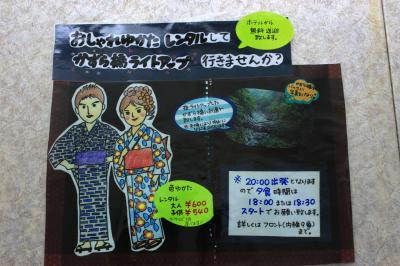 ホテルから
無料送迎
致します。
おしゃれゆかた レンタルして
かずら橋ライトアップ 行きませんか?
夜ライトアップした
かずら橋に
致します。
色ゆかた
レンタル
大人 ¥600
子供 ¥540
※ 20:00出発となります
ので 夕食時間は
18:00 または 18:30
スタートでお願い致します。
詳しくはフロント(内線9番)
まで。